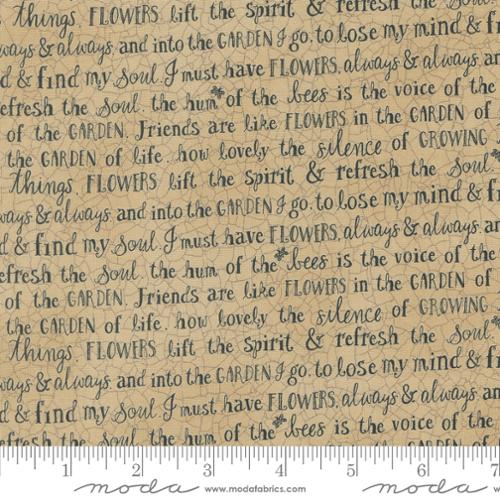 things. FLOWERS lift the spirit & refresh the soul
ways & always. and into the GARDEN I go. to lose my mind & f
d & find my soul. I must have FLOWERS. always & always. an
refresh the soul. the hum of the bees is the voice of the
of the GARDEN. Friends are like FLOWERS in the GARDEN of
the GARDEN of life. how lovely the silence of GROWING
things. FLOWERS lift the spirit & refresh the soul.
ways & always. and into the GARDEN I go. to lose my mind & f
d & find my soul. I must have FLOWERS. always & always. an
efresh the soul. the hum of the bees is the voice of the
of the GARDEN. Friends are like FLOWERS in the GARDEN of
the GARDEN of life. how lovely the silence of GROWING
things. FLOWERS lift the spirit & refresh the soul.
ways & always. and into the GARDEN I go. to lose my mind & fi
d & find my soul. I must have FLOWERS. always & always. an
refresh the soul. the hum of the bees is the voice of the
1 2 3 4 5 6 7
moda www.modafabrics.com moda